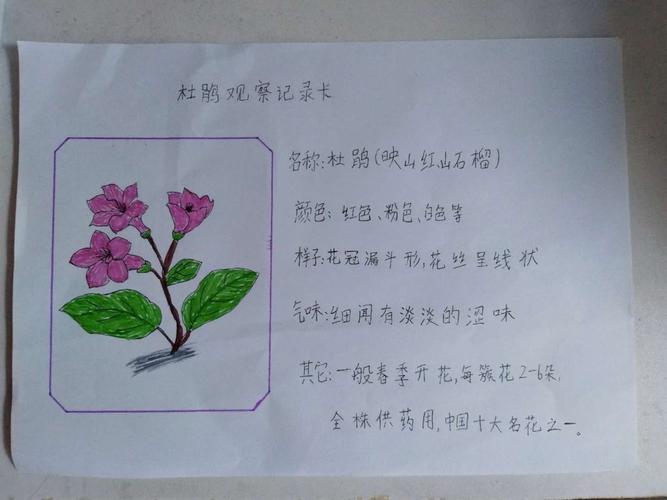 杜鹃观察记录卡
名称:杜鹃(映山红、山石榴)
颜色:红色、粉色、白色等
样子:花冠漏斗形,花丝呈线状
气味:细闻有淡淡的涩味
其它:一般春季开花,每簇花2-6朵,
全株供药用,中国十大名花之一。